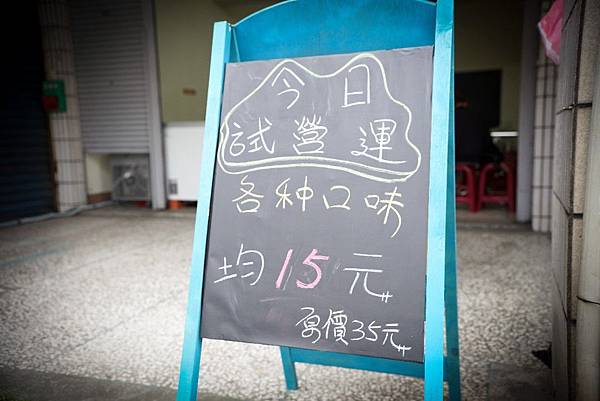 今日
試營運
各种口味
均15元
原價35元